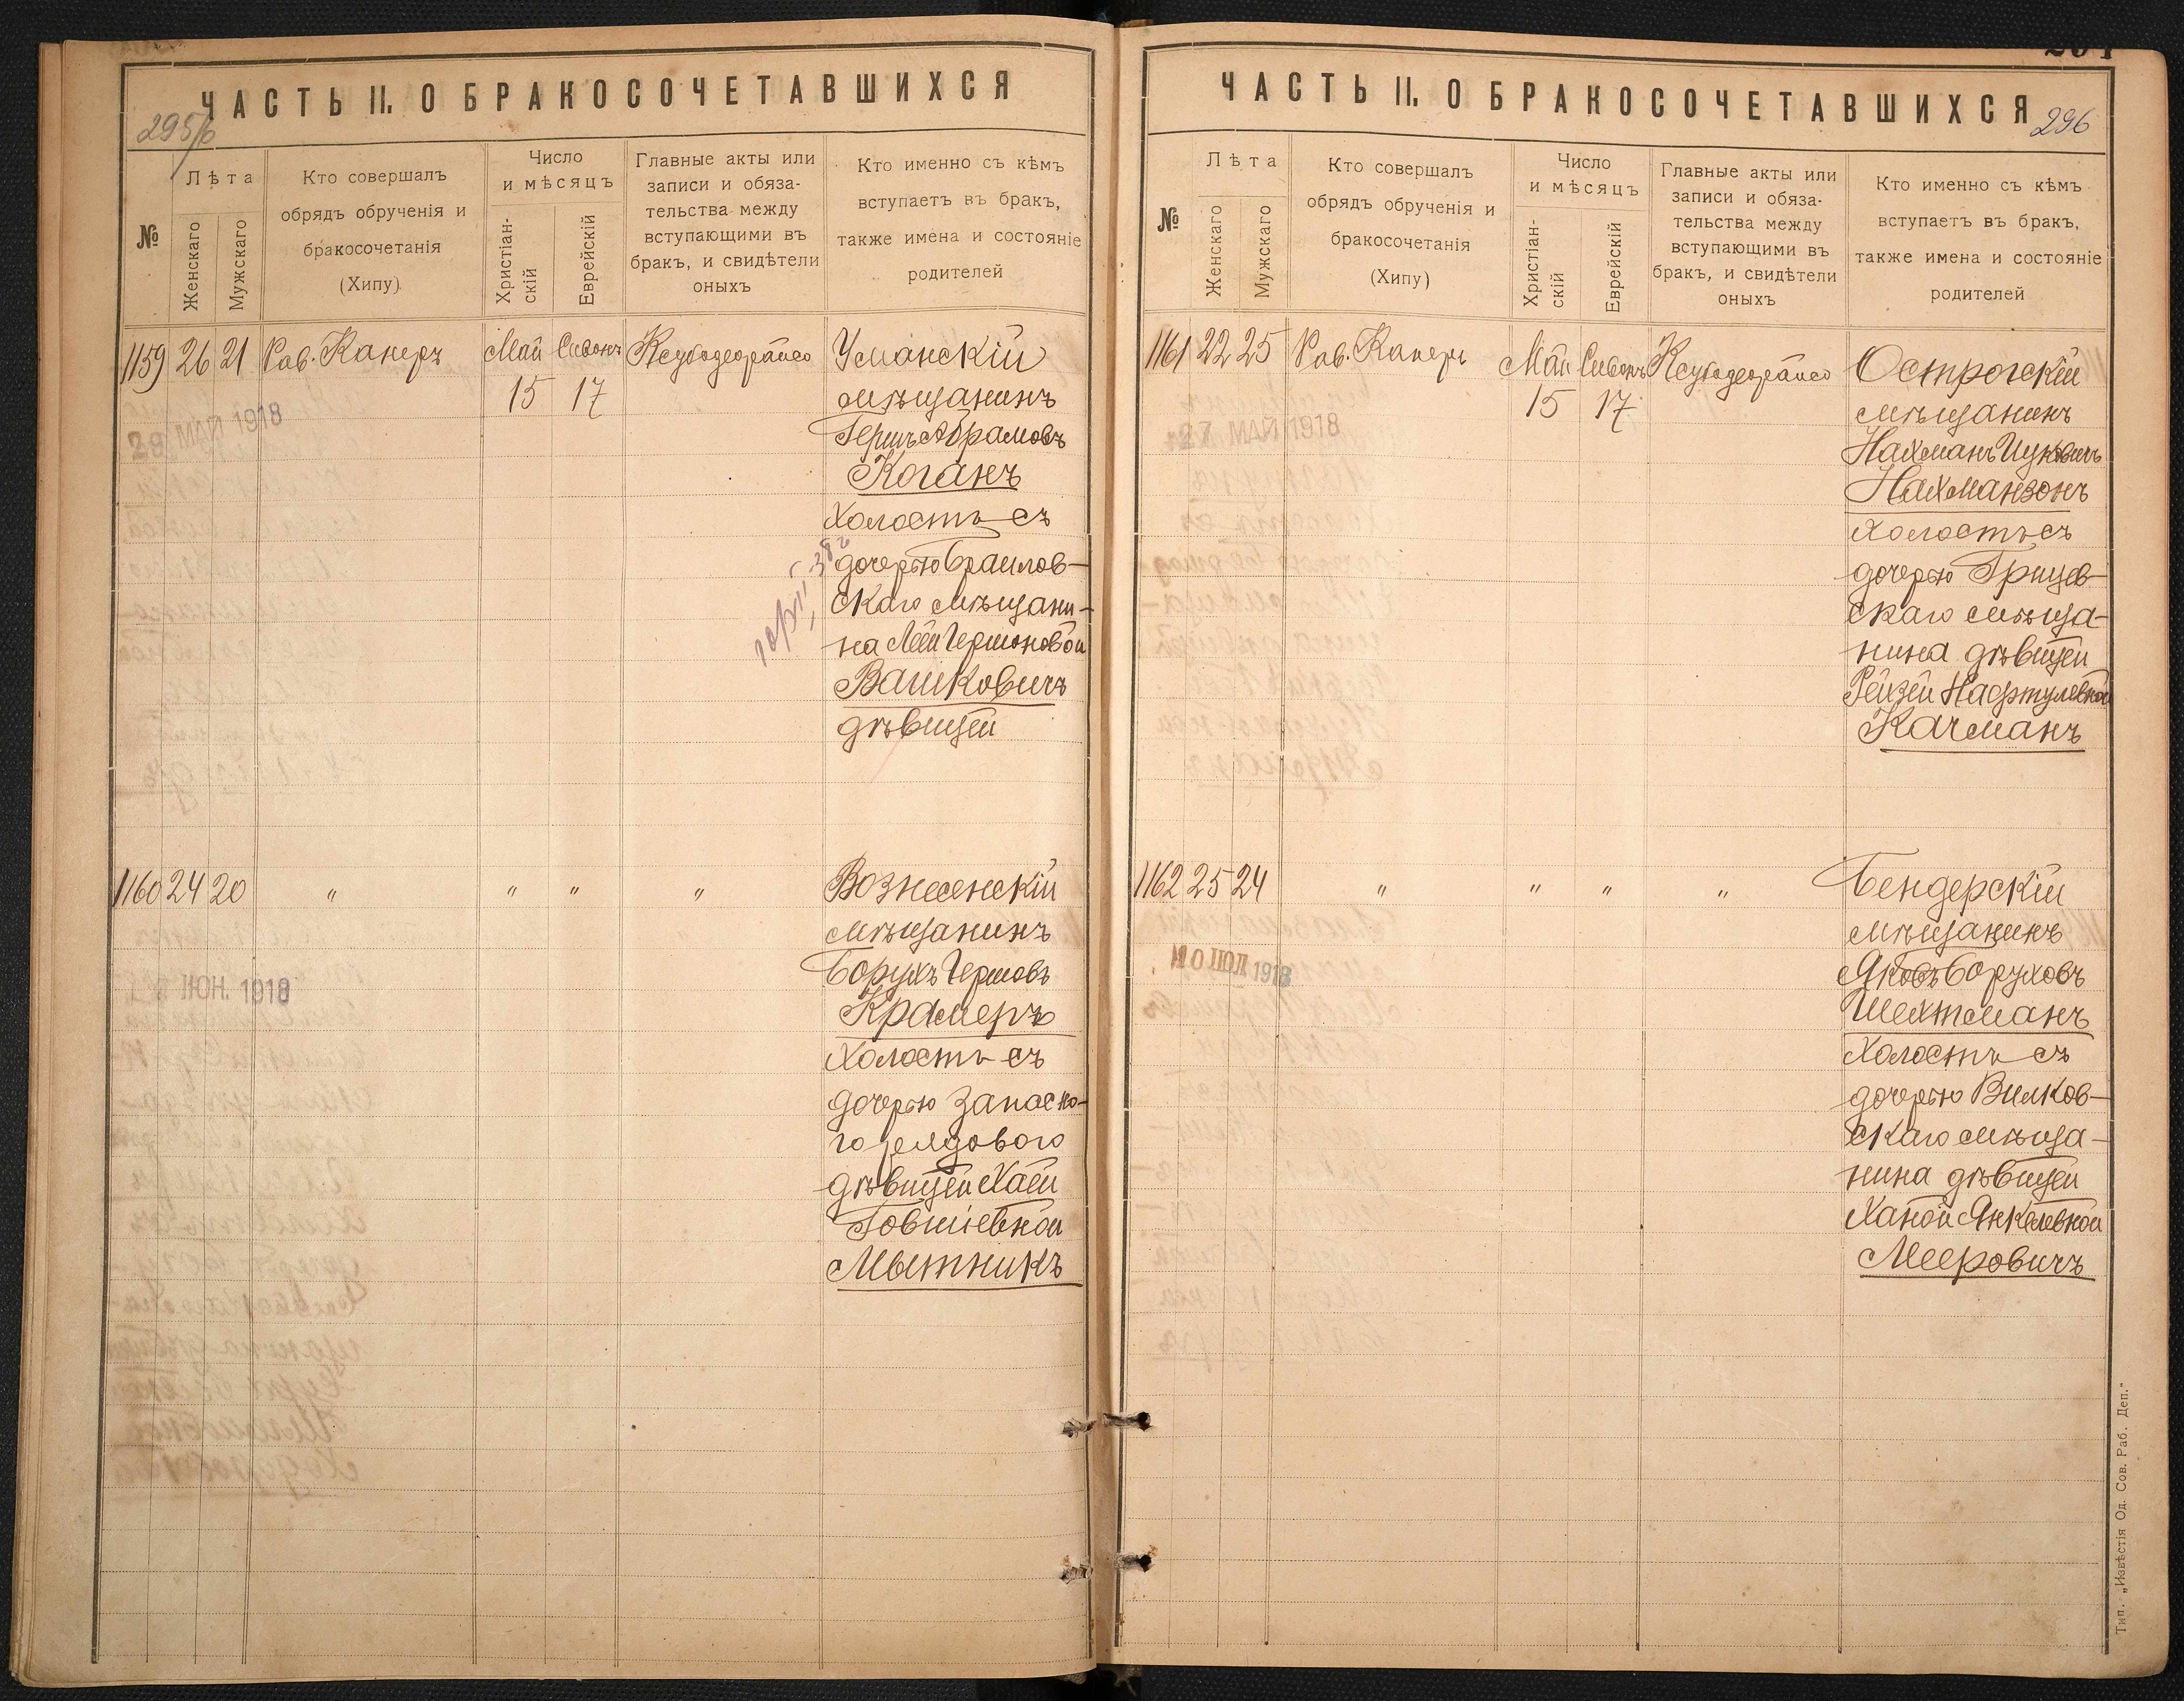 ЧАСТЬ II. О БРАКОСОЧЕТАВШИХСЯ
295/б
№
Лѣта
Женскаго
Мужскаго
Кто совершалъ
обрядъ обрученія и
бракосочетанія
(Хипу)
Число
и мѣсяцъ
Христіан-
скій
Еврейскій
Главные акты или
записи и обяза-
тельства между
вступающими въ
бракъ, и свидѣтели
оныхъ
Кто именно съ кѣмъ
вступаетъ въ бракъ,
также имена и состояніе
родителей
1159 26 21 Рав. Канеръ Май Сивонъ
15 17
МАЙ 1918
Уманскій
мѣщанинъ
Гершъ Абрамовъ
Коганъ
холостъ съ
дочерью Браилов-
скаго мѣщани-
на Леи Гершоновой
Вашковичъ
дѣвицей
1160 24 20 " " " "
ИЮН. 1918
Вознесенскій
мѣщанинъ
Борухъ Гершовъ
Крамеръ
холостъ съ
дочерью запасно-
го рядового
дѣвицей Хаей
Говшіевной
Мытникъ
ЧАСТЬ II. О БРАКОСОЧЕТАВШИХСЯ
296
№
Лѣта
Женскаго
Мужскаго
Кто совершалъ
обрядъ обрученія и
бракосочетанія
(Хипу)
Число
и мѣсяцъ
Христіан-
скій
Еврейскій
Главные акты или
записи и обяза-
тельства между
вступающими въ
бракъ, и свидѣтели
оныхъ
Кто именно съ кѣмъ
вступаетъ въ бракъ,
также имена и состояніе
родителей
1161 22 25 Рав. Канеръ Май Сивонъ
15 17
27 МАЙ 1918
Острогскій
мѣщанинъ
Нахманъ Ицковичъ
Нахманзонъ
холостъ съ
дочерью Грицев-
скаго мѣща-
нина дѣвицей
Рейзей Нафтулевной
Качманъ
1162 25 24 " " " "
10 ІЮЛ 1918
Бендерскій
мѣщанинъ
Яковъ Боруховъ
Шехтманъ
холостъ съ
дочерью Вилков-
скаго мѣща-
нина дѣвицей
Ханой Янкелевной
Мееровичъ
Тип. „Извѣстія Од. Сов. Раб. Деп."